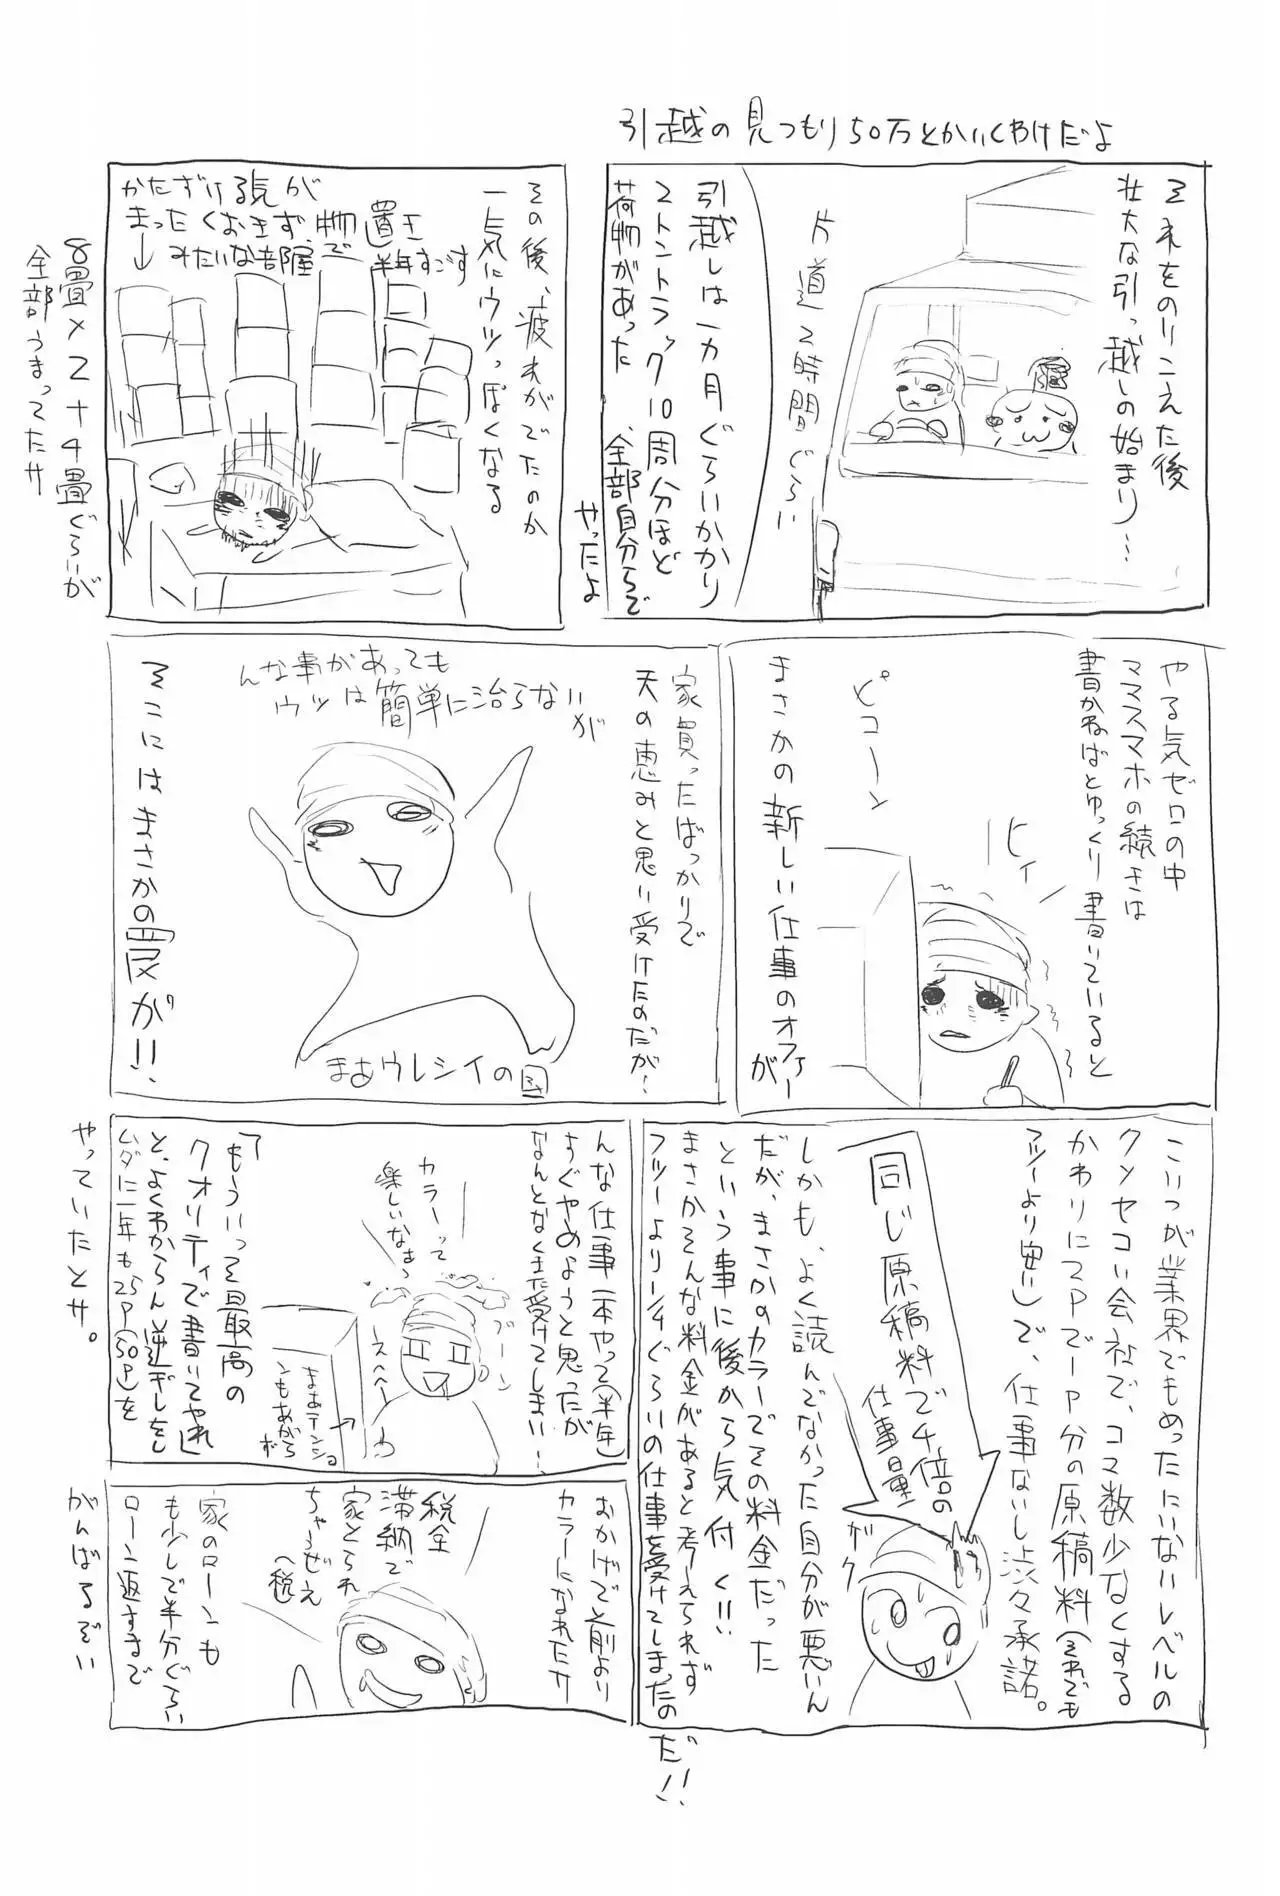 引越の見つもり50万とかいくわけだよ
それをのりこえた後
壮大な引っ越しの始まり…
片道2時間ぐらい
引越しは一カ月ぐらいかかり
2トントラック10周分ほど
荷物があった、全部自分らで
やったよ
その後、疲れがでたのか
一気にウツっぽくなる
かたずける気が
まったくおきず、物置き
みたいな部屋で半年すごす
8畳×2+4畳ぐらいが
全部うまってたサ
やる気ゼロの中
ママスマホの続きは
書かねばとゆっくり書いていると
ヒィ
ピコーン
まさかの新しい仕事のオファーが
家買ったばっかりで
天の恵みと思い受けたのだが…
んな事があっても
ウツは簡単に治らないが
まあウレシイの図
そこにはまさかの罠が!!
こいつが業界でもめったにないレベルの
クソセコい会社で、コマ数少なくする
かわりに2Pで1P分の原稿料(それでも
フツーより安い)で、仕事ないし渋々承諾。
同じ原稿料で4倍の
仕事量
ガク
しかも、よく読んでなかった自分が悪いん
だが、まさかのカラーでその料金だった
という事に後から気付く!!
まさかそんな料金があると考えられず
フツーより1/4ぐらいの仕事を受けてしまったの
だ!!
んな仕事一本やって(半年)
すぐやめようと思ったが
なんとなくまだ受けてしまい…
カラーって
楽しいなぁ~
ブーン
えへへー
まあテンショ
ンもあがら
ず
「もういっそ最高の
クオリティで書いてやれ」
と、よくわからん逆ギレをし
ムダに一年も25P(50P)を
やっていたとサ。
おかげで前より
カラーになれたサ
税金
滞納で
家とられ
ちゃうぜえ
(税)
家のローンも
も少しで半分ぐらい
ローン返すまで
がんばるぞい